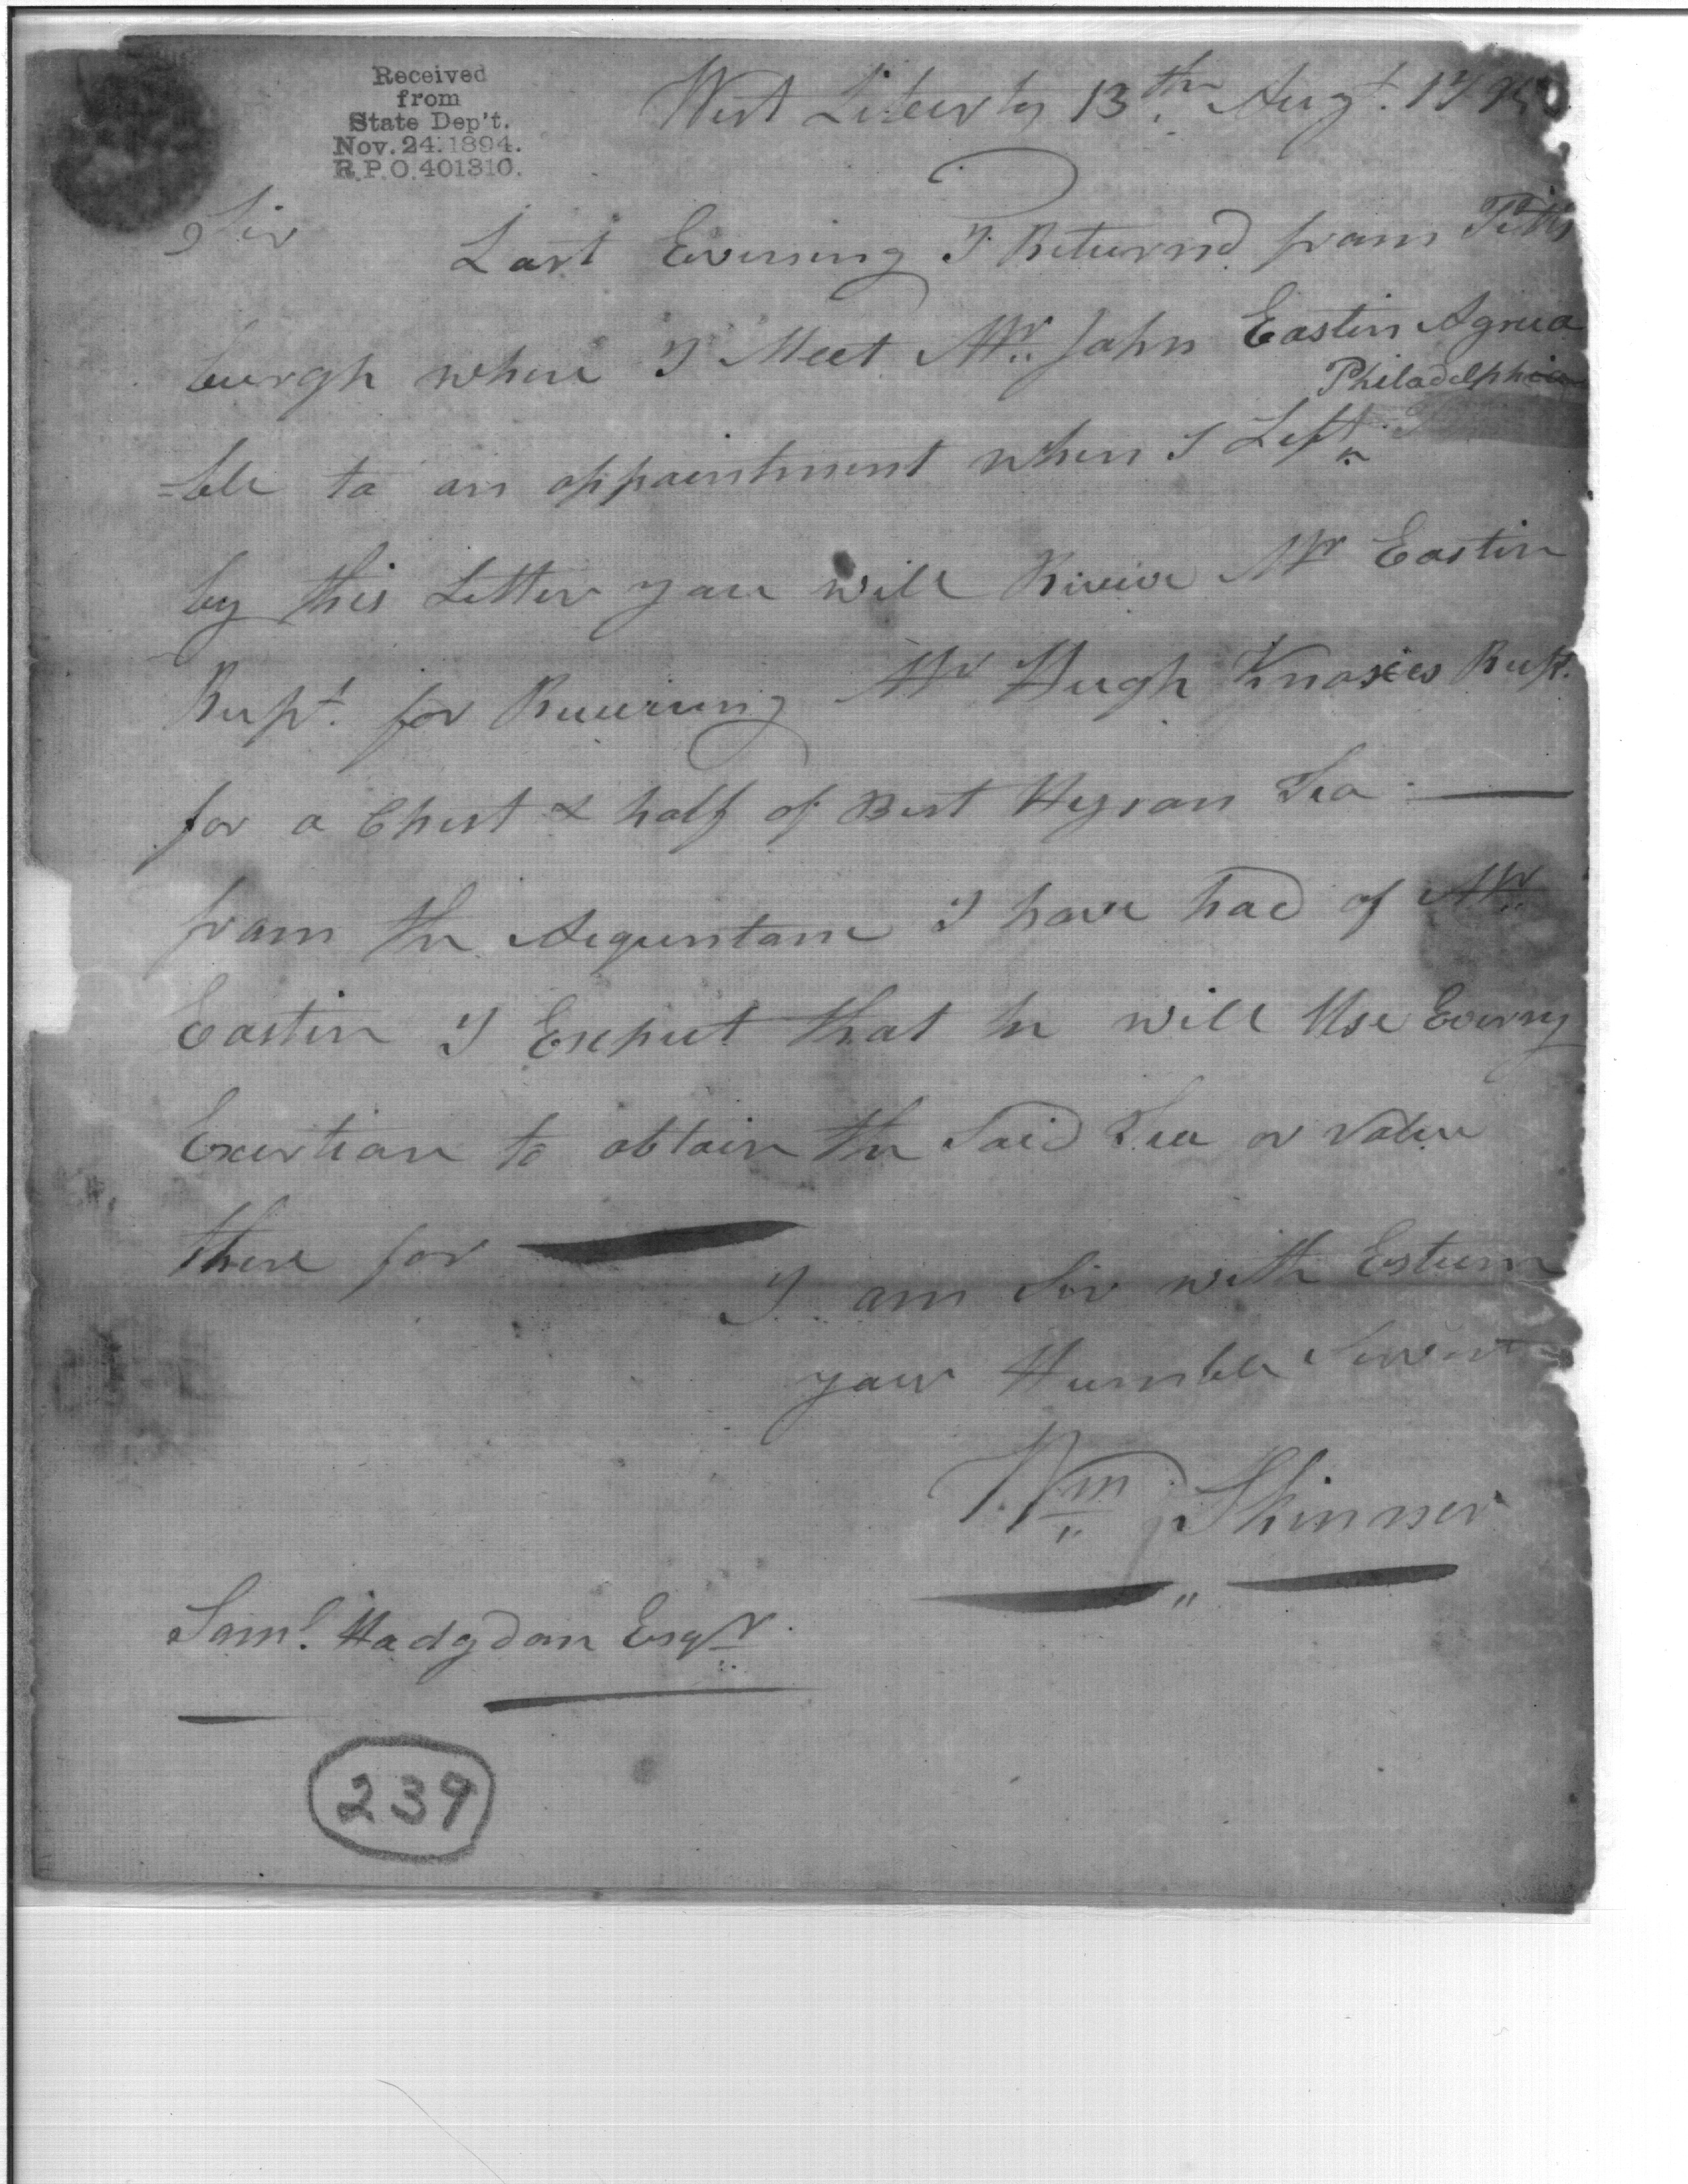 Received
from
State Dep't.
Nov. 24. 1894.
R.P.O. 401310.
West Liberty 13th Augt. 179
Sir
Last Evening I Returnd from Pitts
burgh where I Meet Mr. John Eastin Agrea
Philadelphia
=ble to an appointment when I Left
by this Letter you will Riceive Mr Eastin
Rcept. for Receiving Mr Hugh Knoxes Rcept.
for a Chest & half of Best Hyson Tea
from the Aequentance I have had of Mr.
Eastin I Expect that he will Use Every
Exertion to obtain the Said Tea or Value
there for
I am Sir with Esteem
your Humble Servant
Wm Skinner
Saml. Hodgdon Esqr.
239